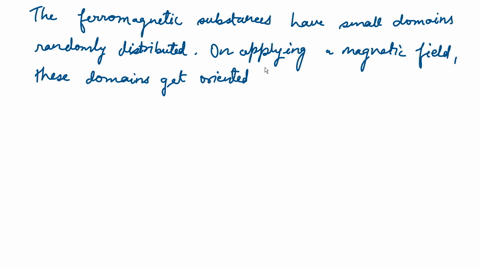 The ferromagnetic substances have small domains
randomly distributed. On applying a magnetic field,
these domains get oriented